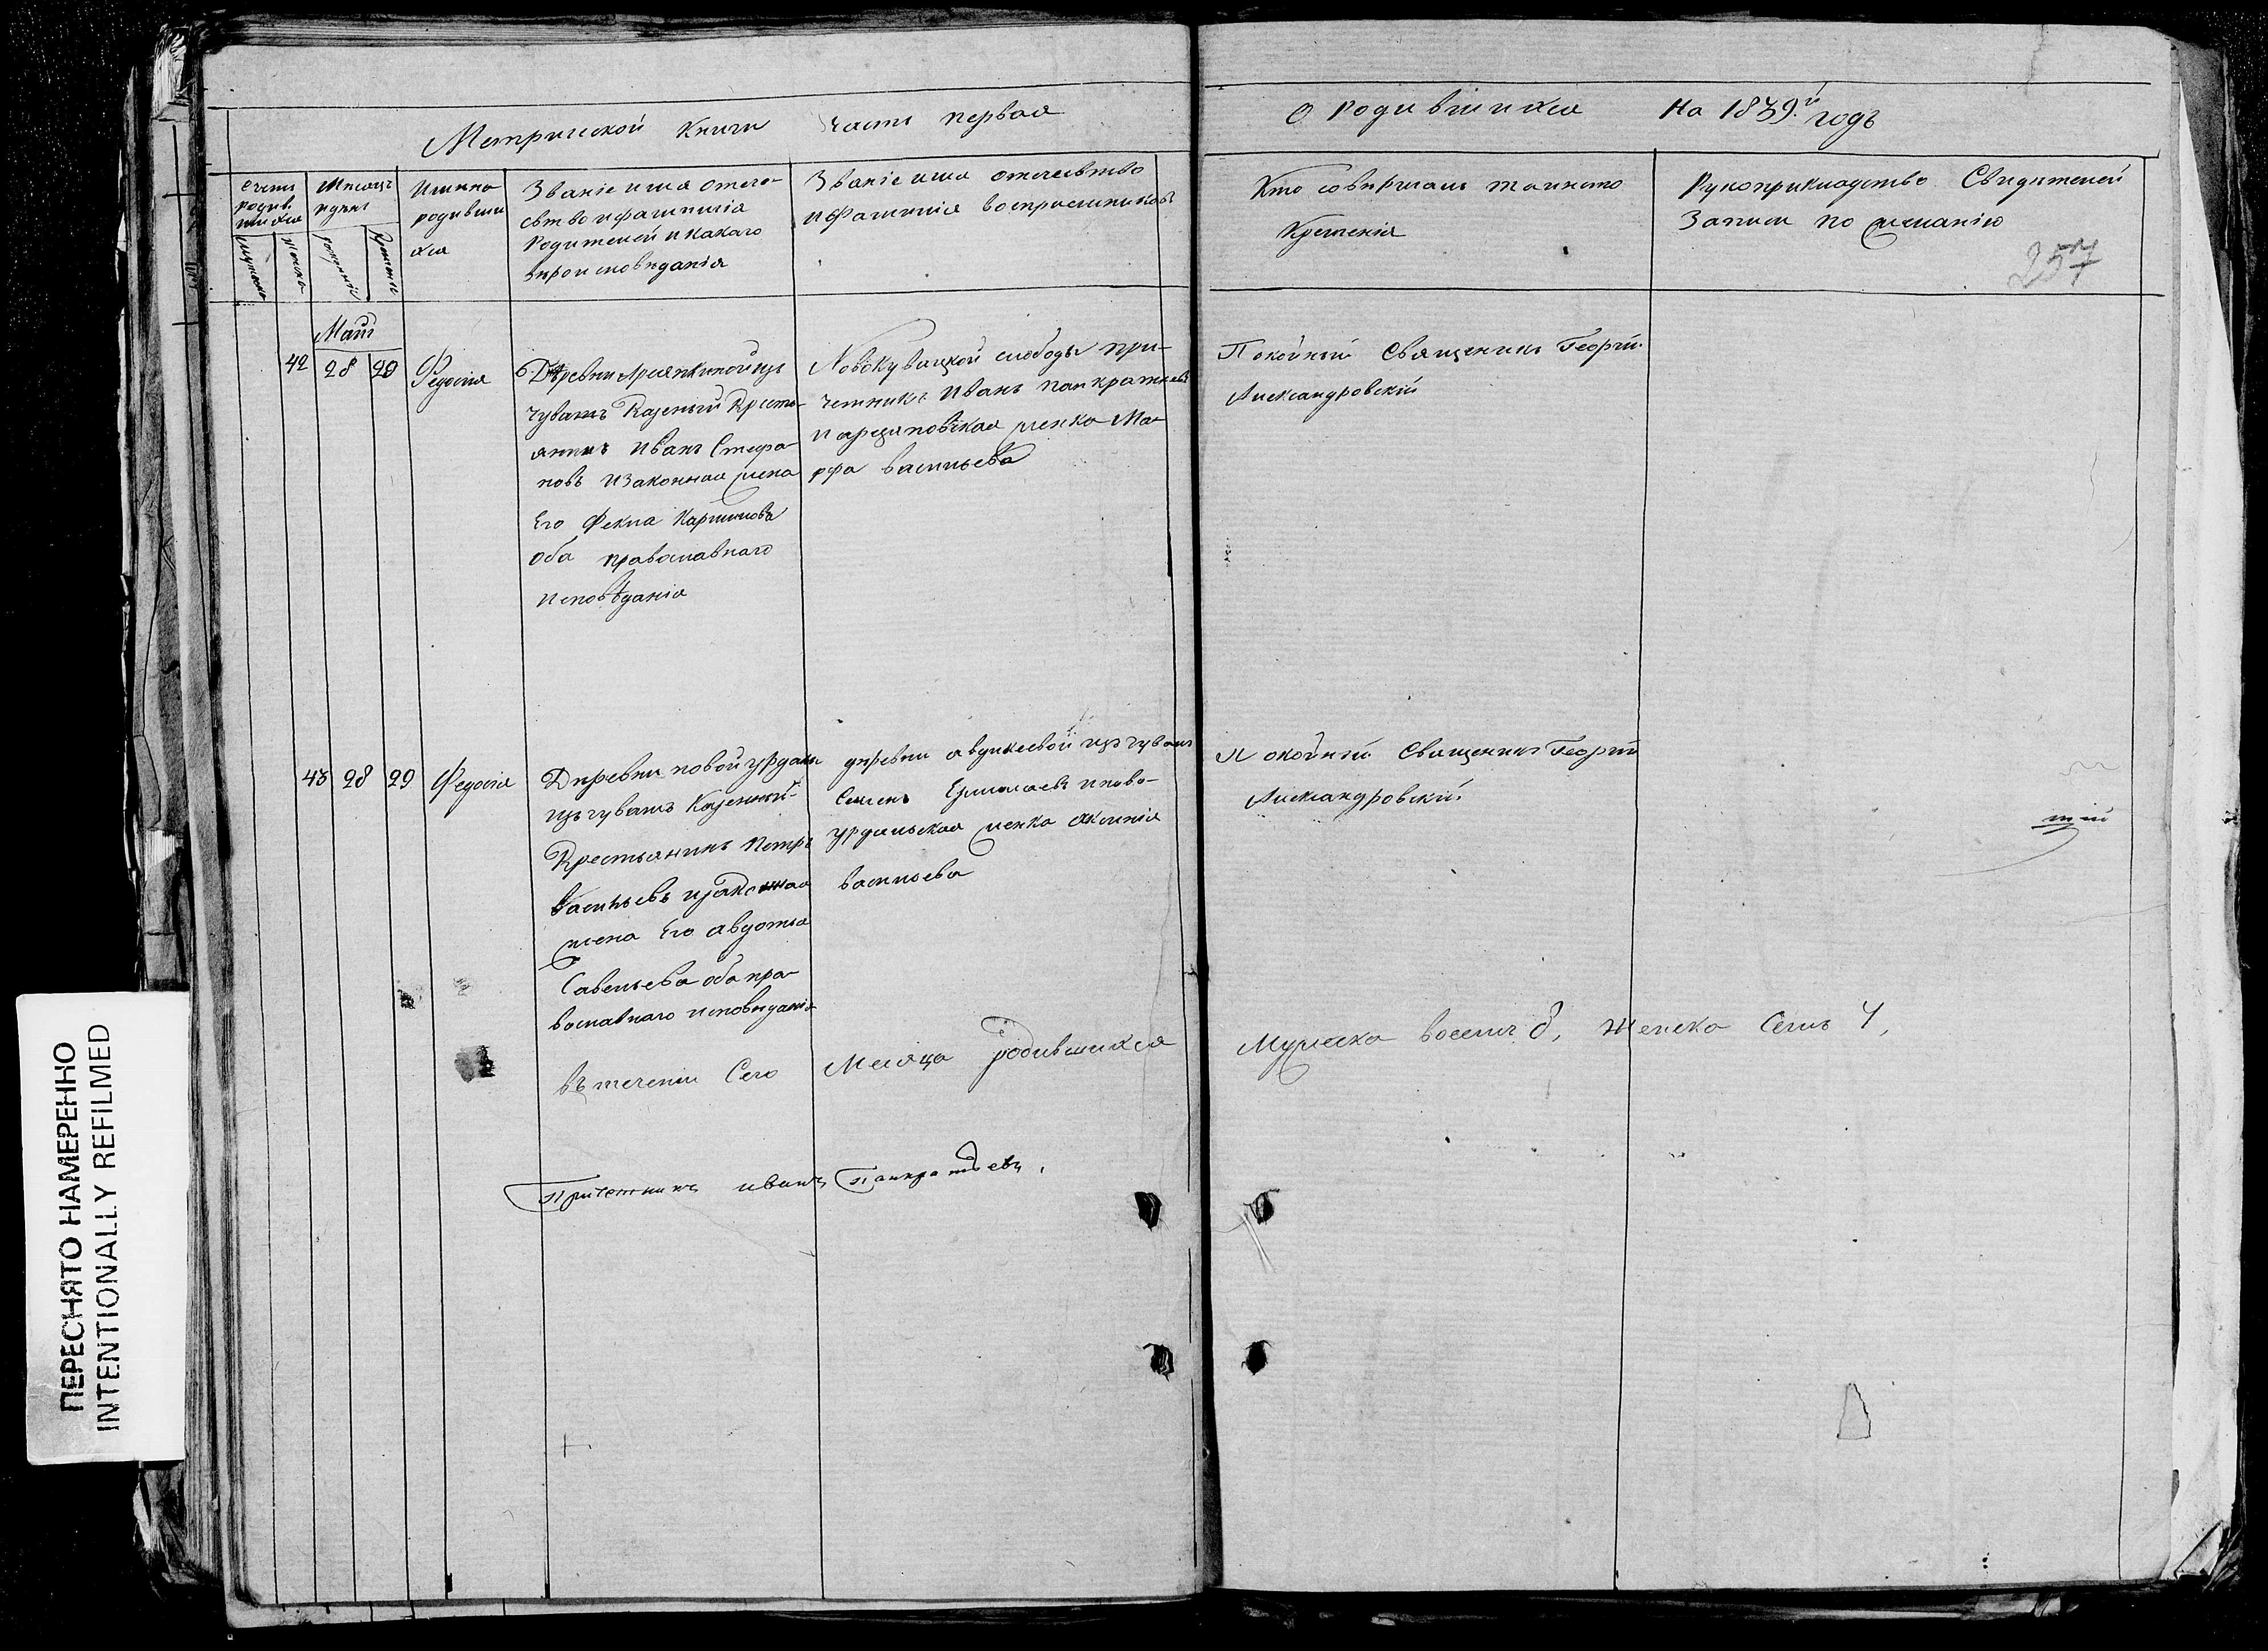 Метрической Книги часть первая
О родившихся На 1839.й годъ
Счетъ родив. шихся
Мужеска
Женска
Месяцъ и день
рожденія
Крещенія
Имяна родивши хся
Званіе имя отече-
ство и фамилія
Родителей и какаго
вероисповеданія
Званіе имя отечевство
и Фамилія восприемниковъ
Кто совершалъ таинство
Крещенія
Рукоприкладство Свидетелей
Записи по желанію
257
Маій
42 28 29 Федосія
Деревни
чувашъ Казеный Кресть-
янинъ Иванъ Стефа-
новъ и законная жена
Его Фекла
оба православнаго
исповѣданія
Новокувацкой слободы при-
четникъ Иванъ панкратьевъ
женка Ма-
рфа васильева
Покойный Священикъ Георгій
Александровскій
43 28 29 Федосія
Деревни новой
изъ чувашъ Казенный
Крестьянинъ Петръ
Васильевъ и законная
жена Его авдотья
Савельева оба пра-
вославнаго исповеданія
деревни авделкеевой изъ чувашъ
Семенъ Ермолаевъ и ново-
урдальская женка
васильева
Покойный Священикъ Георгій
Александровскій
тій
въ теченіи Сего Месяца родившихся
Мужеска восемь 8, Женско Семь 7,
Причетникъ иванъ Панкратьевъ.
ПЕРЕСНЯТО НАМЕРЕННО
INTENTIONALLY REFILMED